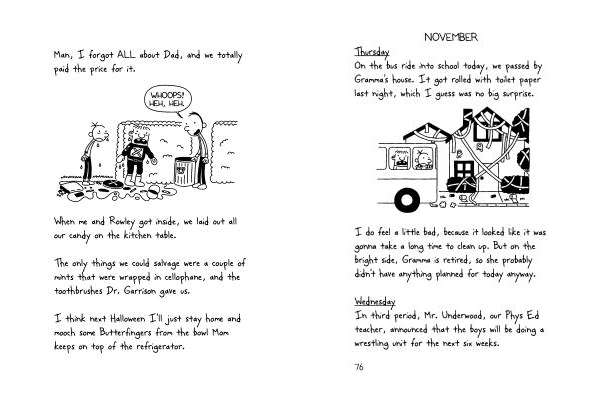 Man, I forgot ALL about Dad, and we totally
paid the price for it.
WHOOPS!
HEH, HEH.
When me and Rowley got inside, we laid out all
our candy on the kitchen table.
The only things we could salvage were a couple of
mints that were wrapped in cellophane, and the
toothbrushes Dr. Garrison gave us.
I think next Halloween I'll just stay home and
mooch some Butterfingers from the bowl Mom
keeps on top of the refrigerator.
NOVEMBER
Thursday
On the bus ride into school today, we passed by
Gramma's house. It got rolled with toilet paper
last night, which I guess was no big surprise.
I do feel a little bad, because it looked like it was
gonna take a long time to clean up. But on the
bright side, Gramma is retired, so she probably
didn't have anything planned for today anyway.
Wednesday
In third period, Mr. Underwood, our Phys Ed
teacher, announced that the boys will be doing a
wrestling unit for the next six weeks.
76